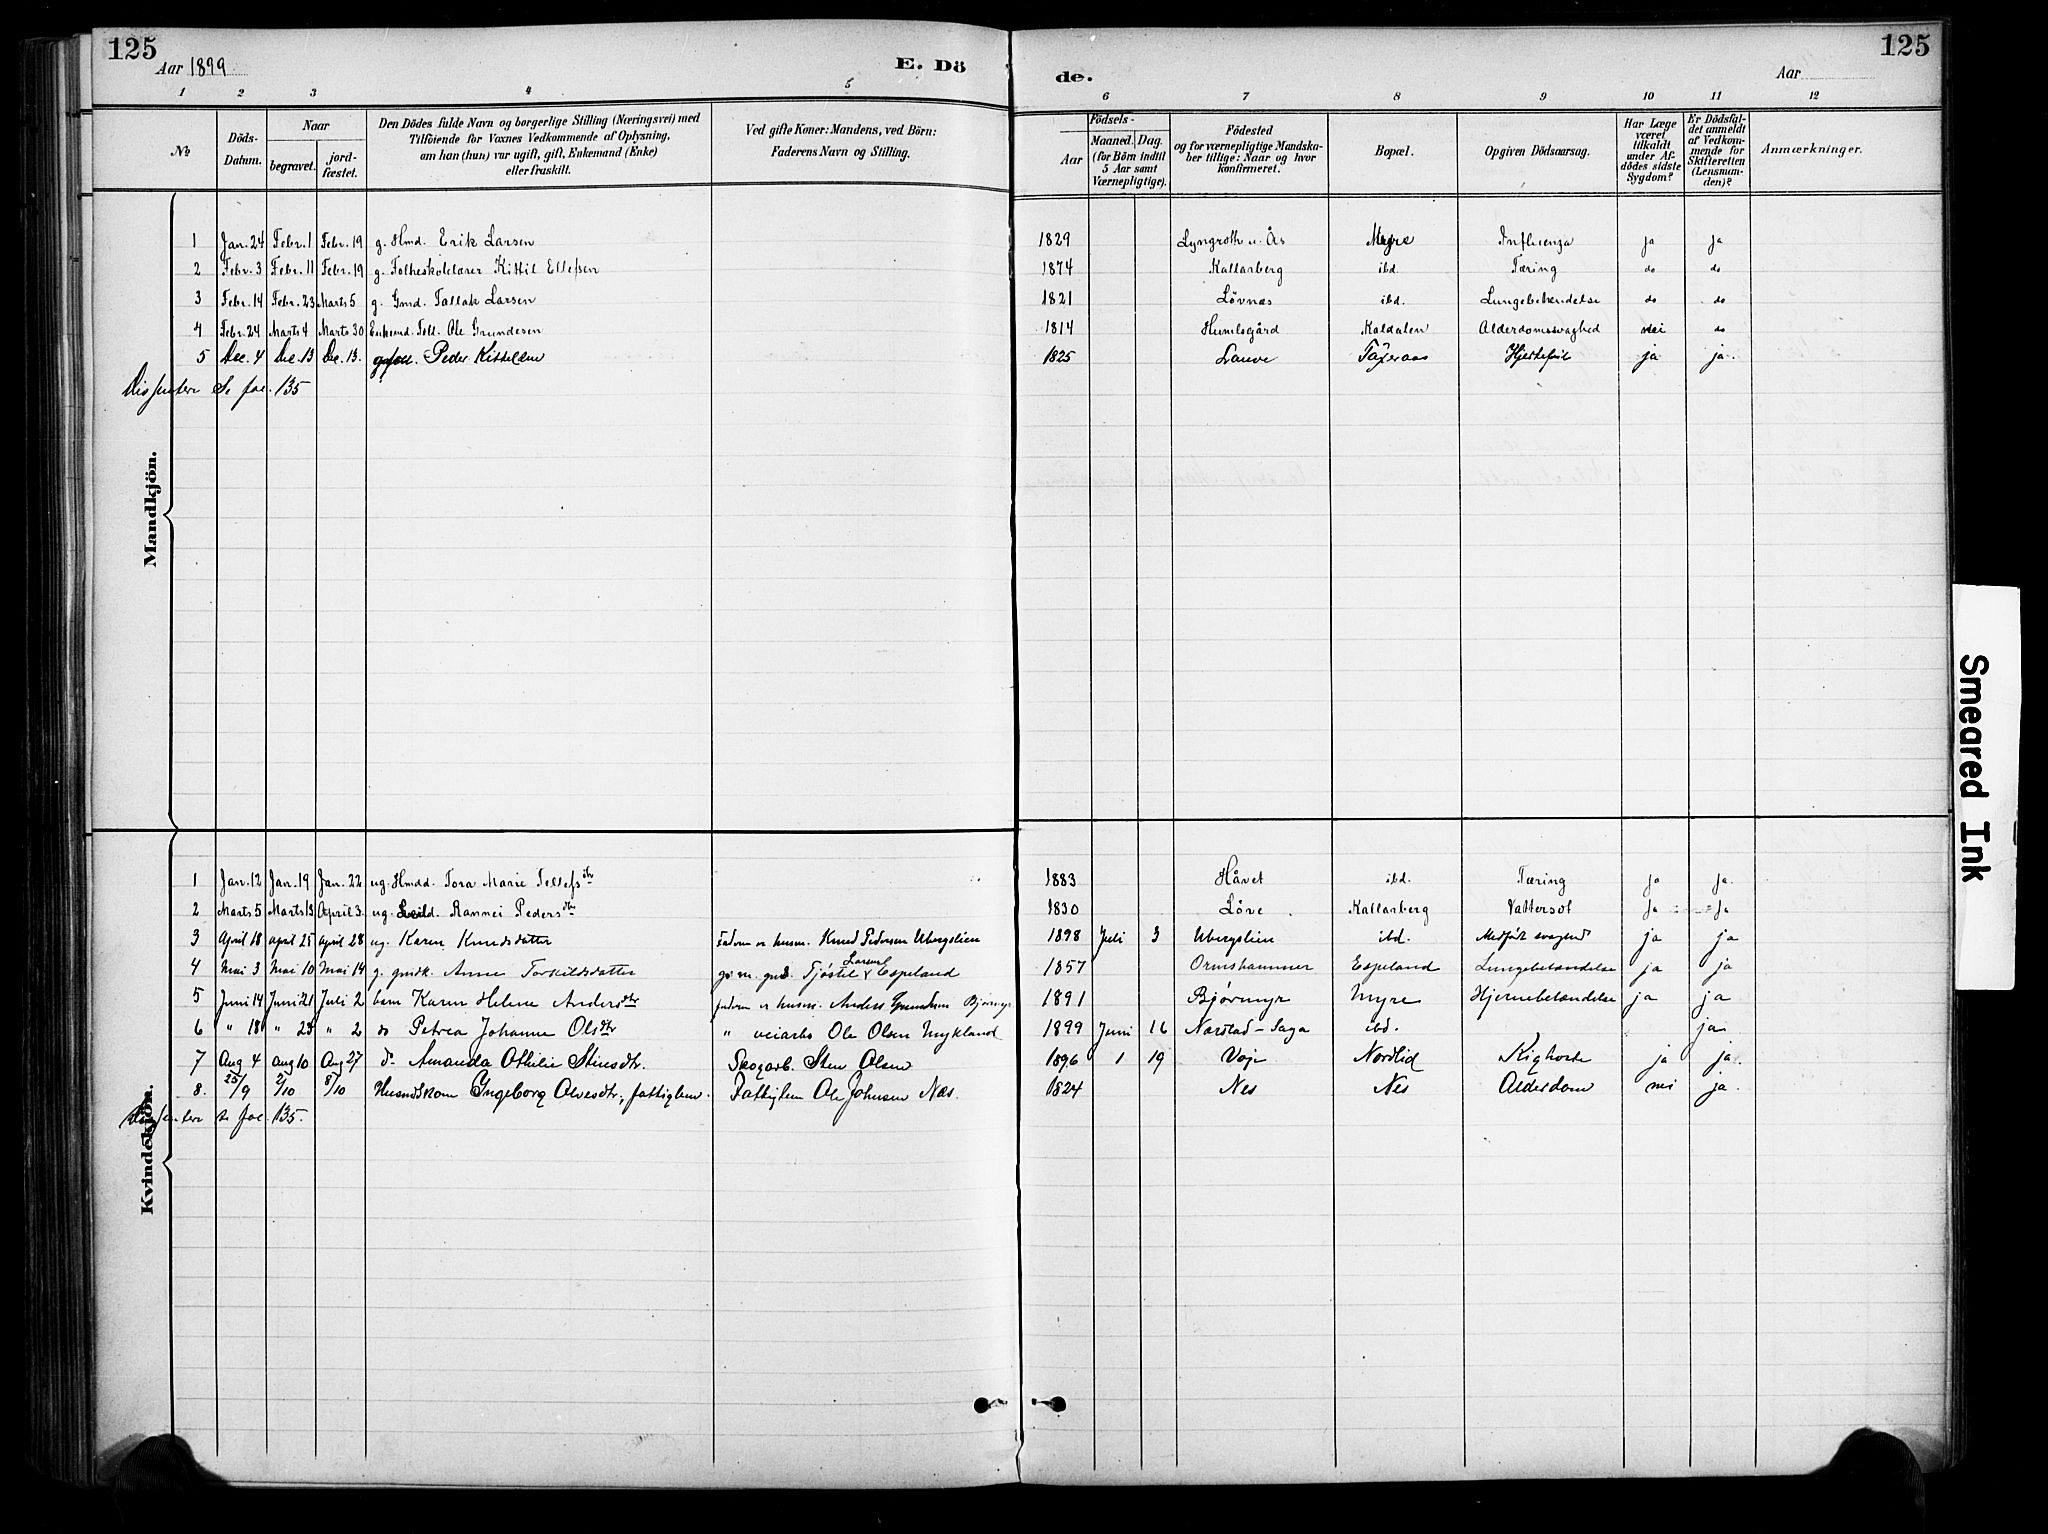 125
Aar 1899
E. Dö
de.
Aar
125
1 2 3 4 5 6 7 8 9 10 11 12
No
Döds-Datum.
Naar
begravet.
jord-fæstet.
Den Dödes fulde Navn og borgerlige Stilling (Næringsvei) med
Tilföiende for Voxnes Vedkommende af Oplysning,
om han (hun) var ugift, gift, Enkemand (Enke)
eller fraskilt.
Ved gifte Koner: Mandens, ved Börn:
Faderens Navn og Stilling.
Födsels-
Aar
Maaned. Dag.
(for Börn indtil
5 Aar samt
Værnepligtige).
Födested
og for værnepligtige Mandska-
ber tillige: Naar og hvor
konfirmeret.
Bopæl.
Opgiven Dödsaarsag.
Har Læge
været
tilkaldt
under Af-
dödes sidste
Sygdom?
Er Dödsfal-
det anmeldt
af Vedkom-
mende for
Skifteretten
(Lensman-
den)?
Anmærkninger.
Mandkjön.
1 Jan. 24 Febr. 1 Febr. 19 g. Hmd. Erik Larsen 1829 Lyngroth u. Ås Myre Influenza ja ja
2 Febr. 3 Febr. 11 Febr. 19 g. Folkeskolelærer Kittil Ellefsen 1874 Kallarberg ibd. Tæring do do
3 Febr. 14 Febr. 23 Marts 5 g. Gmd. Tallak Larsen 1821 Lövnæs ibd. Lungebetændelse do do
4 Febr. 24 Marts 4 Marts 30 Enkemd. Foll. Ole Grundesen 1814 Humlegård Kaldalen Alderdomssvaghed nei do
5 Dec. 4 Dec. 13 Dec. 13. Peder Kittelsen 1825 Lauve Hjertefeil ja ja.
Dissentere Se fol. 135
Kvindekjön.
1 Jan. 12 Jan. 19 Jan. 22 ug. Hmdd. Tora Marie Tellefsdtr 1883 Håvet ibd. Tæring ja ja.
2 Marts 5 Marts 13 April 3. ug. Rannei Pedersdtr 1830 Löve Kallarberg Vattersot ja ja
3 April 18 april 25 april 28 ug. Karen Knudsdatter Faderen er husm. Knud Pedersen Ubergslien 1898 Juli 3 Ubergslien ibd. Medfödt svaghed ja ja
4 Mai 3 Mai 10 Mai 14 g. gmdk. Anne Torkildsdatter gm. Tjöstel Larsen Espeland 1857 Ormshammer Espeland Lungebetændelse ja ja
5 Juni 14 Juni 21 Juli 2 barn Karen Helene Andersdtr faderen er husm. Anders Grundesen Bjørmyr 1891 Bjørmyr Myre Hjernebetændelse ja ja
6 " 18 " 23 " 2 do Petrea Johanne Olsdtr " veiarb. Ole Olsen Mykland 1899 Juni 16 Nordlad - Saga ibd. ja
7 Aug 4 aug 10 Aug 27 do Amanda Othilie Stinesdtr. Skogarb. Sten Olsen 1896 1 19 Voje Nordlid Kighoste ja ja.
8. 25/9 2/10 8/10 Husmdskone Ingeborg Alvesdtr, fattiglem. Fattiglem Ole Johnsen Næs. 1824 Nes Nes Alderdom nei ja.
Dissentere se fol. 135.
Smeared Ink